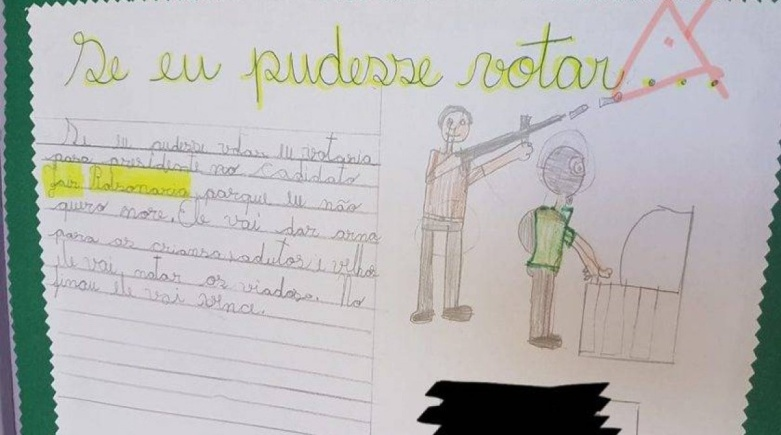 Se eu pudesse votar...
Se eu pudesse votar eu votaria
para presidente no cadidato
jair Bolsonaro, porque eu não
quero more. Ele vai dar arma
para as criansa, adutos e velhos
Ele vai matar os viados. No
finau ele vai vence.